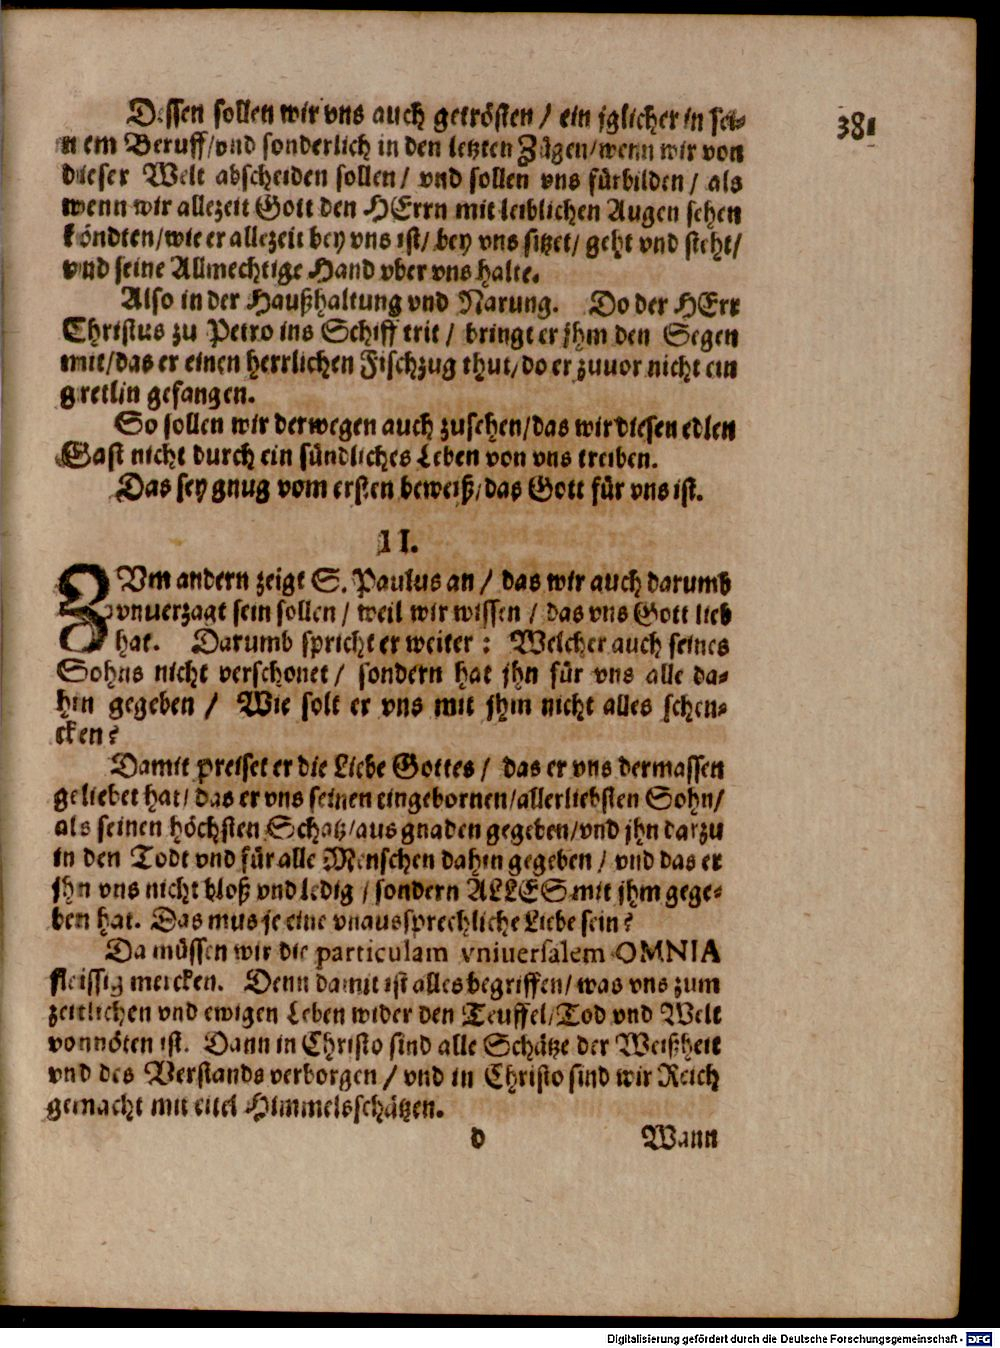 381
Dessen sollen wir vns auch getrösten / ein jglicher in sei-
nem Beruff/vnd sonderlich in den letzten Zügen/wenn wir von
dieser Welt abscheiden sollen/ vnd sollen vns fürbilden/ als
wenn wir allezeit Gott den HErrn mit leiblichen Augen sehen
köndten/wie er allezeit bey vns ist/ bey vns sitzet/ geht vnd steht/
vnd seine Allmechtige Hand vber vns halte.
Also in der Haußhaltung vnd Narung. Do der HErr
Christus zu Petro ins Schiff trit / bringt er jhm den Segen
mit/das er einen herrlichen Fischzug thut/do er zuuor nicht ein
gretlin gefangen.
So sollen wir derwegen auch zusehen/das wir diesen edlen
Gast nicht durch ein sündliches Leben von vns treiben.
Das sey gnug vom ersten beweiß/das Gott für vns ist.
II.
ZVm andern zeigt S. Paulus an / das wir auch darumb
vnuerzagt sein sollen / weil wir wissen / das vns Gott lieb
hat. Darumb spricht er weiter: Welcher auch seines
Sohns nicht verschonet / sondern hat jhn für vns alle da-
hin gegeben / Wie solt er vns mit jhm nicht alles schen-
cken?
Damit preiset er die Liebe Gottes / das er vns dermassen
geliebet hat/ das er vns seinen eingebornen/allerliebsten Sohn/
als seinen höchsten Schatz/aus gnaden gegeben/vnd jhn darzu
in den Todt vnd für alle Menschen dahin gegeben / vnd das er
jhn vns nicht bloß vnd ledig / sondern ALLES mit jhm gege-
ben hat. Das mus je eine vnaussprechliche Liebe sein?
Da müssen wir die particulam vniuersalem OMNIA
fleissig mercken. Denn damit ist alles begriffen/ was vns zum
zeitlichen vnd ewigen Leben wider den Teuffel/Tod vnd Welt
vonnöten ist. Dann in Christo sind alle Schätze der Weißheit
vnd des Verstands verborgen / vnd in Christo sind wir Reich
gemacht mit eitel Himmelsschätzen.
d Wann
Digitalisierung gefördert durch die Deutsche Forschungsgemeinschaft - DFG